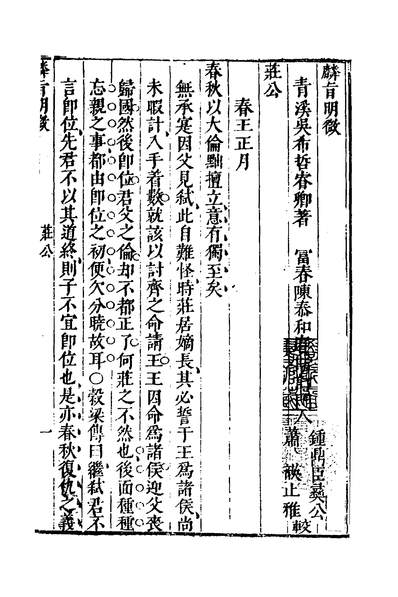 麟旨明微
青溪吳希哲睿卿著 富春陳泰和
鍾鼎臣彝公
蕭 袂止雅 較
莊公
春王正月
春秋以大倫黜擅立意有獨至矣
無承寔因父見弒此自難怪時莊居嫡長其必誓于王爲諸侯尚
未暇計入手着數就該以討齊之命請王王因命爲諸侯迎父喪
歸國然後卽位君父之倫却不都正了何莊之不然也後面種種
忘親之事都由卽位之初便欠分曉故耳○穀梁傳曰繼弒君不
言卽位先君不以其道終則子不宜卽位也是亦春秋復仇之義
麟旨明微 莊公 一